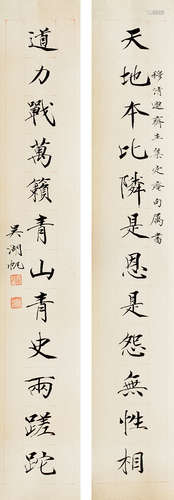 天地本比隣是恩是怨無性相
穆清邀齋主集定庵句屬書
道力戰萬籟青山青史兩蹉跎
吳湖帆